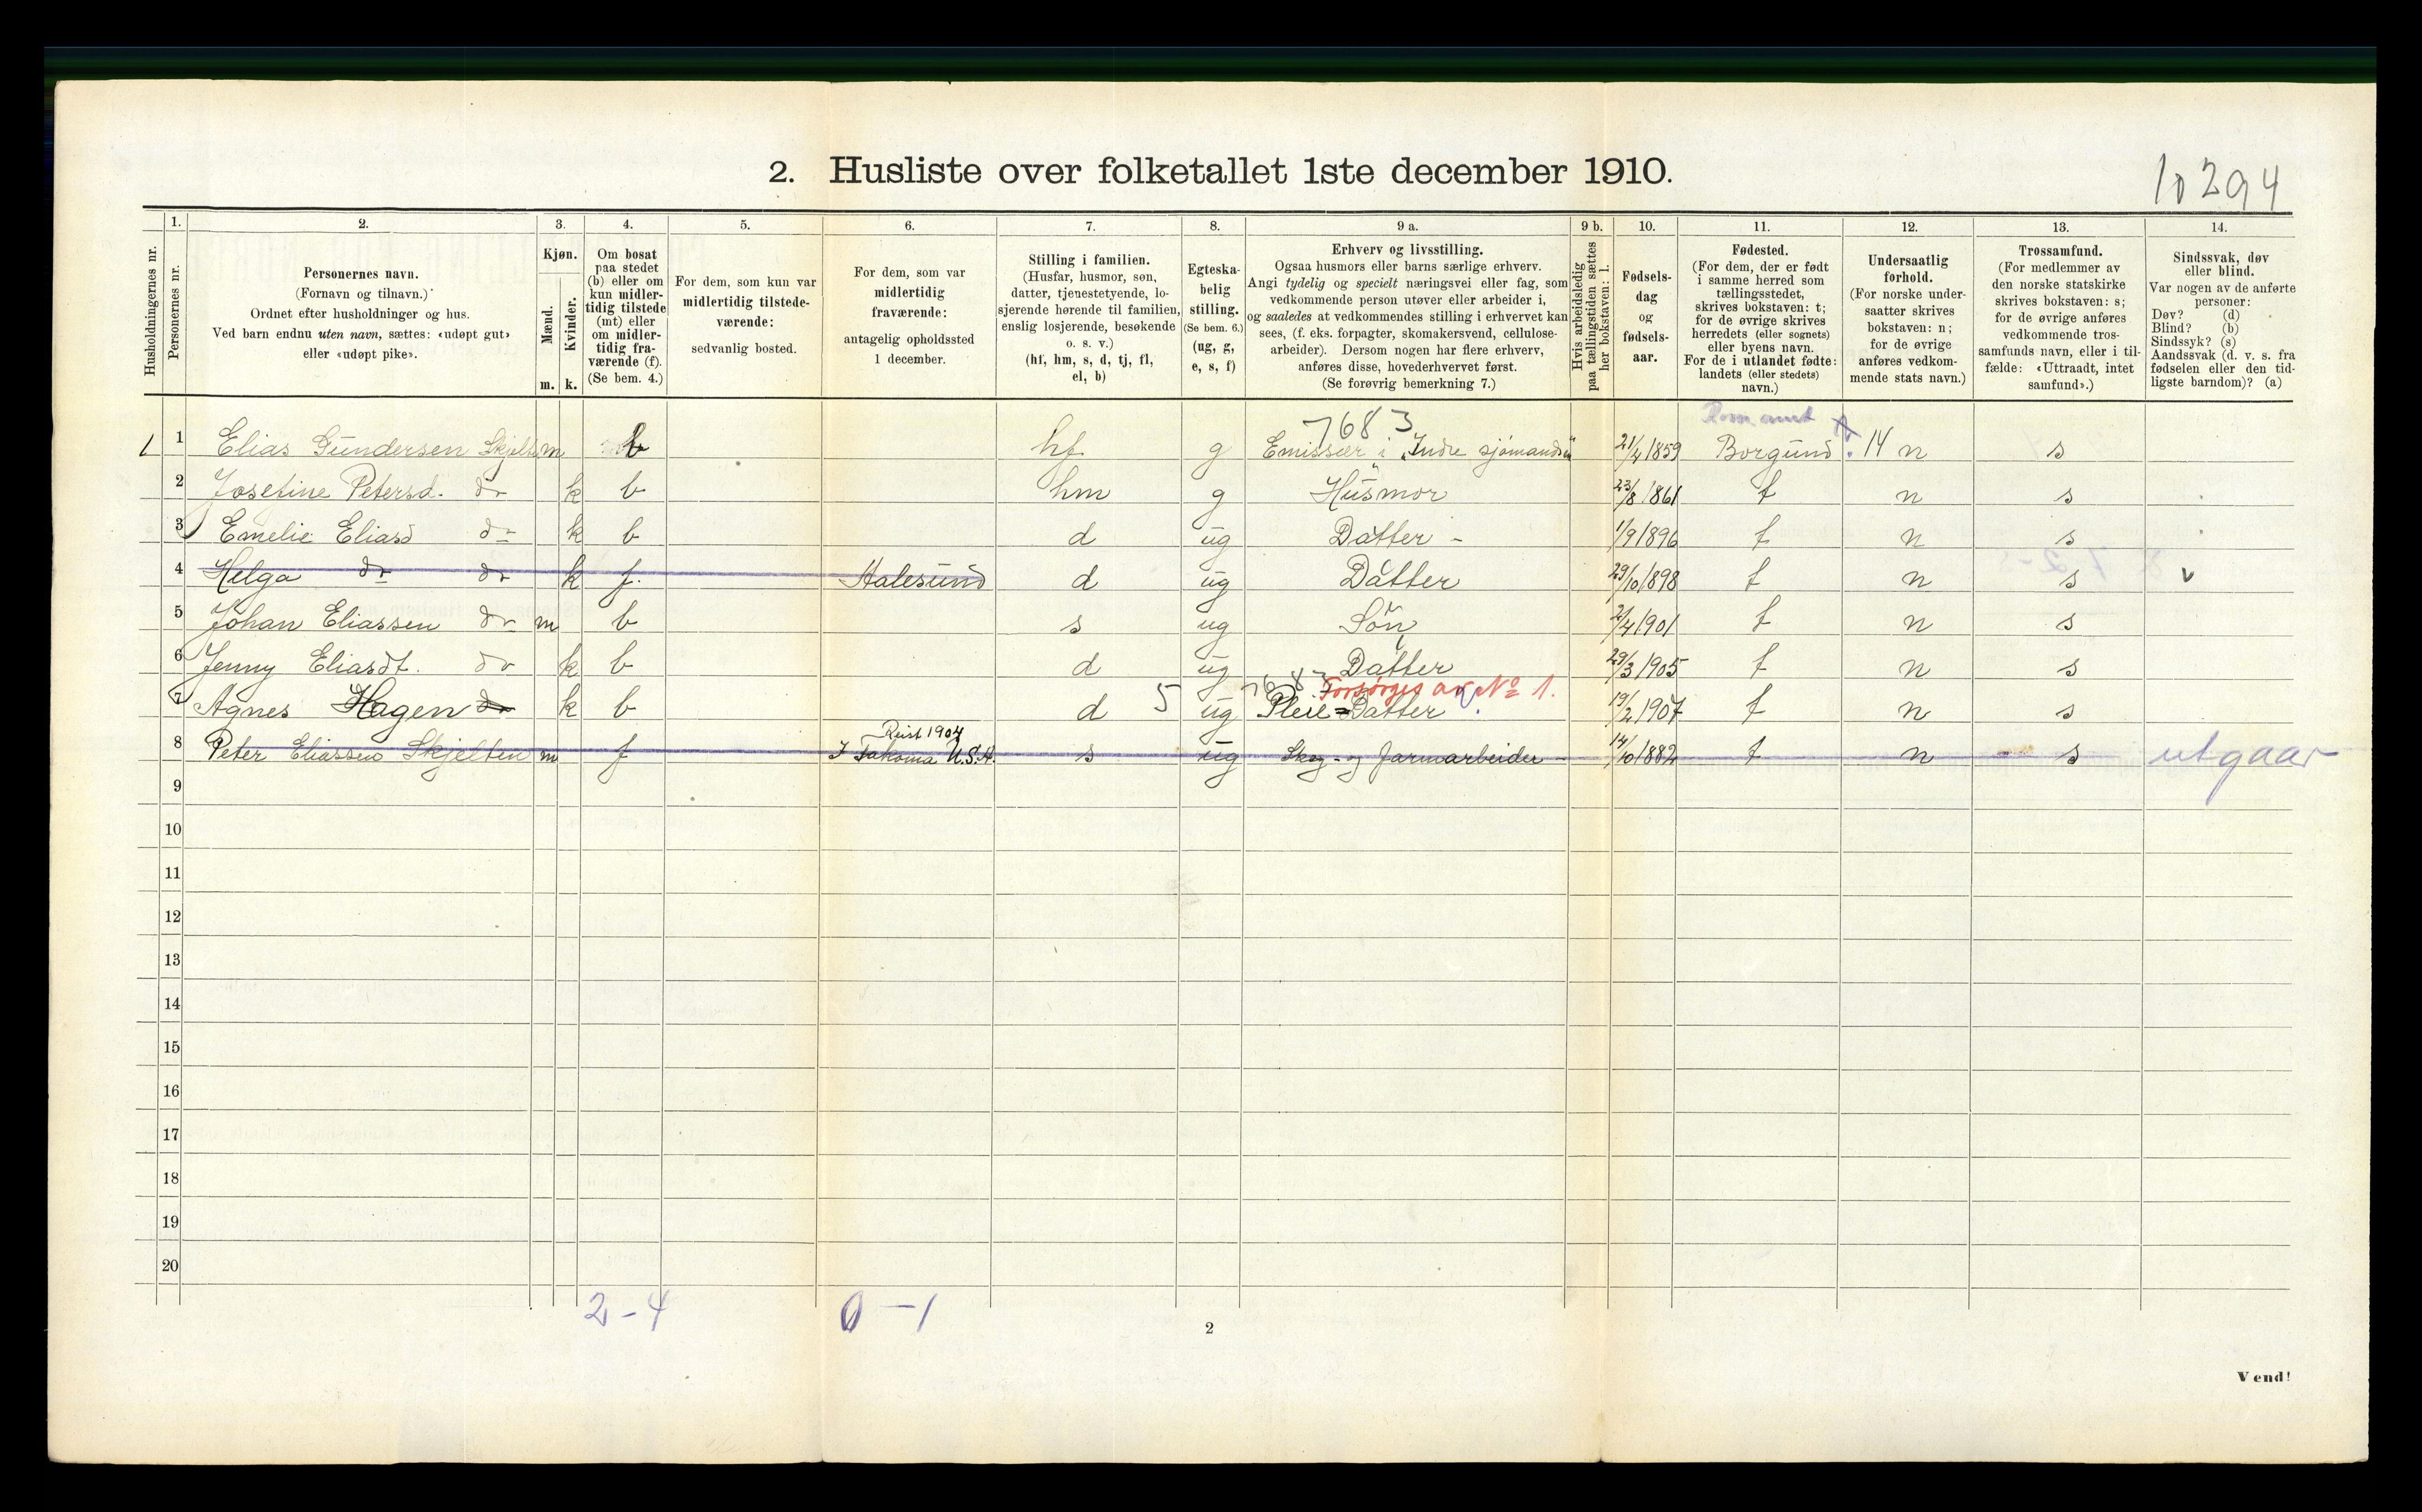 2. Husliste over folketallet 1ste december 1910.
10294
Husholdningernes nr.
1.
Personernes nr.
2.
Personernes navn.
(Fornavn og tilnavn.)
Ordnet efter husholdninger og hus.
Ved barn endnu uten navn, sættes: «udøpt gut»
eller «udøpt pike».
3.
Kjøn.
Mænd.
Kvinder.
m. k.
4.
Om bosat
paa stedet
(b) eller om
kun midler-
tidig tilstede
(mt) eller
om midler-
tidig fra-
værende (f).
(Se bem. 4.)
5.
For dem, som kun var
midlertidig tilstede-
værende:
sedvanlig bosted.
6.
For dem, som var
midlertidig
fraværende:
antagelig opholdssted
1 december.
7.
Stilling i familien.
(Husfar, husmor, søn,
datter, tjenestetyende, lo-
sjerende hørende til familien,
enslig losjerende, besøkende
o. s. v.)
(hf, hm, s, d, tj, fl,
el, b)
8.
Egteska-
belig
stilling.
(Se bem. 6.)
(ug, g,
e, s, f)
9 a.
Erhverv og livsstilling.
Ogsaa husmors eller barns særlige erhverv.
Angi tydelig og specielt næringsvei eller fag, som
vedkommende person utøver eller arbeider i,
og saaledes at vedkommendes stilling i erhvervet kan
sees, (f. eks. forpagter, skomakersvend, cellulose-
arbeider). Dersom nogen har flere erhverv,
anføres disse, hovederhvervet først.
(Se forøvrig bemerkning 7.)
9 b.
Hvis arbeidsledig
paa tællingstiden sættes
her bokstaven: l.
10.
Fødsels-
dag
og
fødsels-
aar.
11.
Fødested.
(For dem, der er født
i samme herred som
tællingsstedet,
skrives bokstaven: t;
for de øvrige skrives
herredets (eller sognets)
eller byens navn.
For de i utlandet fødte:
landets (eller stedets)
navn.)
12.
Undersaatlig
forhold.
(For norske under-
saatter skrives
bokstaven: n;
for de øvrige
anføres vedkom-
mende stats navn.)
13.
Trossamfund.
(For medlemmer av
den norske statskirke
skrives bokstaven: s;
for de øvrige anføres
vedkommende tros-
samfunds navn, eller i til-
fælde: «Uttraadt, intet
samfund».)
14.
Sindssvak, døv
eller blind.
Var nogen av de anførte
personer:
Døv? (d)
Blind? (b)
Sindssyk? (s)
Aandssvak (d. v. s. fra
fødselen eller den tid-
ligste barndom)? (a)
7683 Rom amt
1 1 Elias Gundersen Skjelt m b hf g Emissær i "Indre sjømandsm" 21/4 1859 Borgund. 14 n s
2 Josefine Petersd. do k b hm g Husmor 23/8 1861 t n s
3 Emelie Eliasd do k b d ug Datter - 1/9 1896 t n s
4 Helga do do k f. Aalesund d ug Datter 29/10 1898 t n s v
5 Johan Eliassen do m b s ug Søn 21/4 1901 t n s
6 Jenny Eliasdt. do k b d ug Datter 29/3 1905 t n s
7683 Forsørges av No 1.
7 Agnes Hagen do k b d 5 ug Pleie=Datter. 19/2 1907 t n s
Reist 1904
8 Peter Eliassen Skjelten m f I Takoma U.S.A. s ug Skog- og farmarbeider - 14/10 1882 t n s utgaar
9
10
11
12
13
14
15
16
17
18
19
20
2-4 0-1
2
Vend!